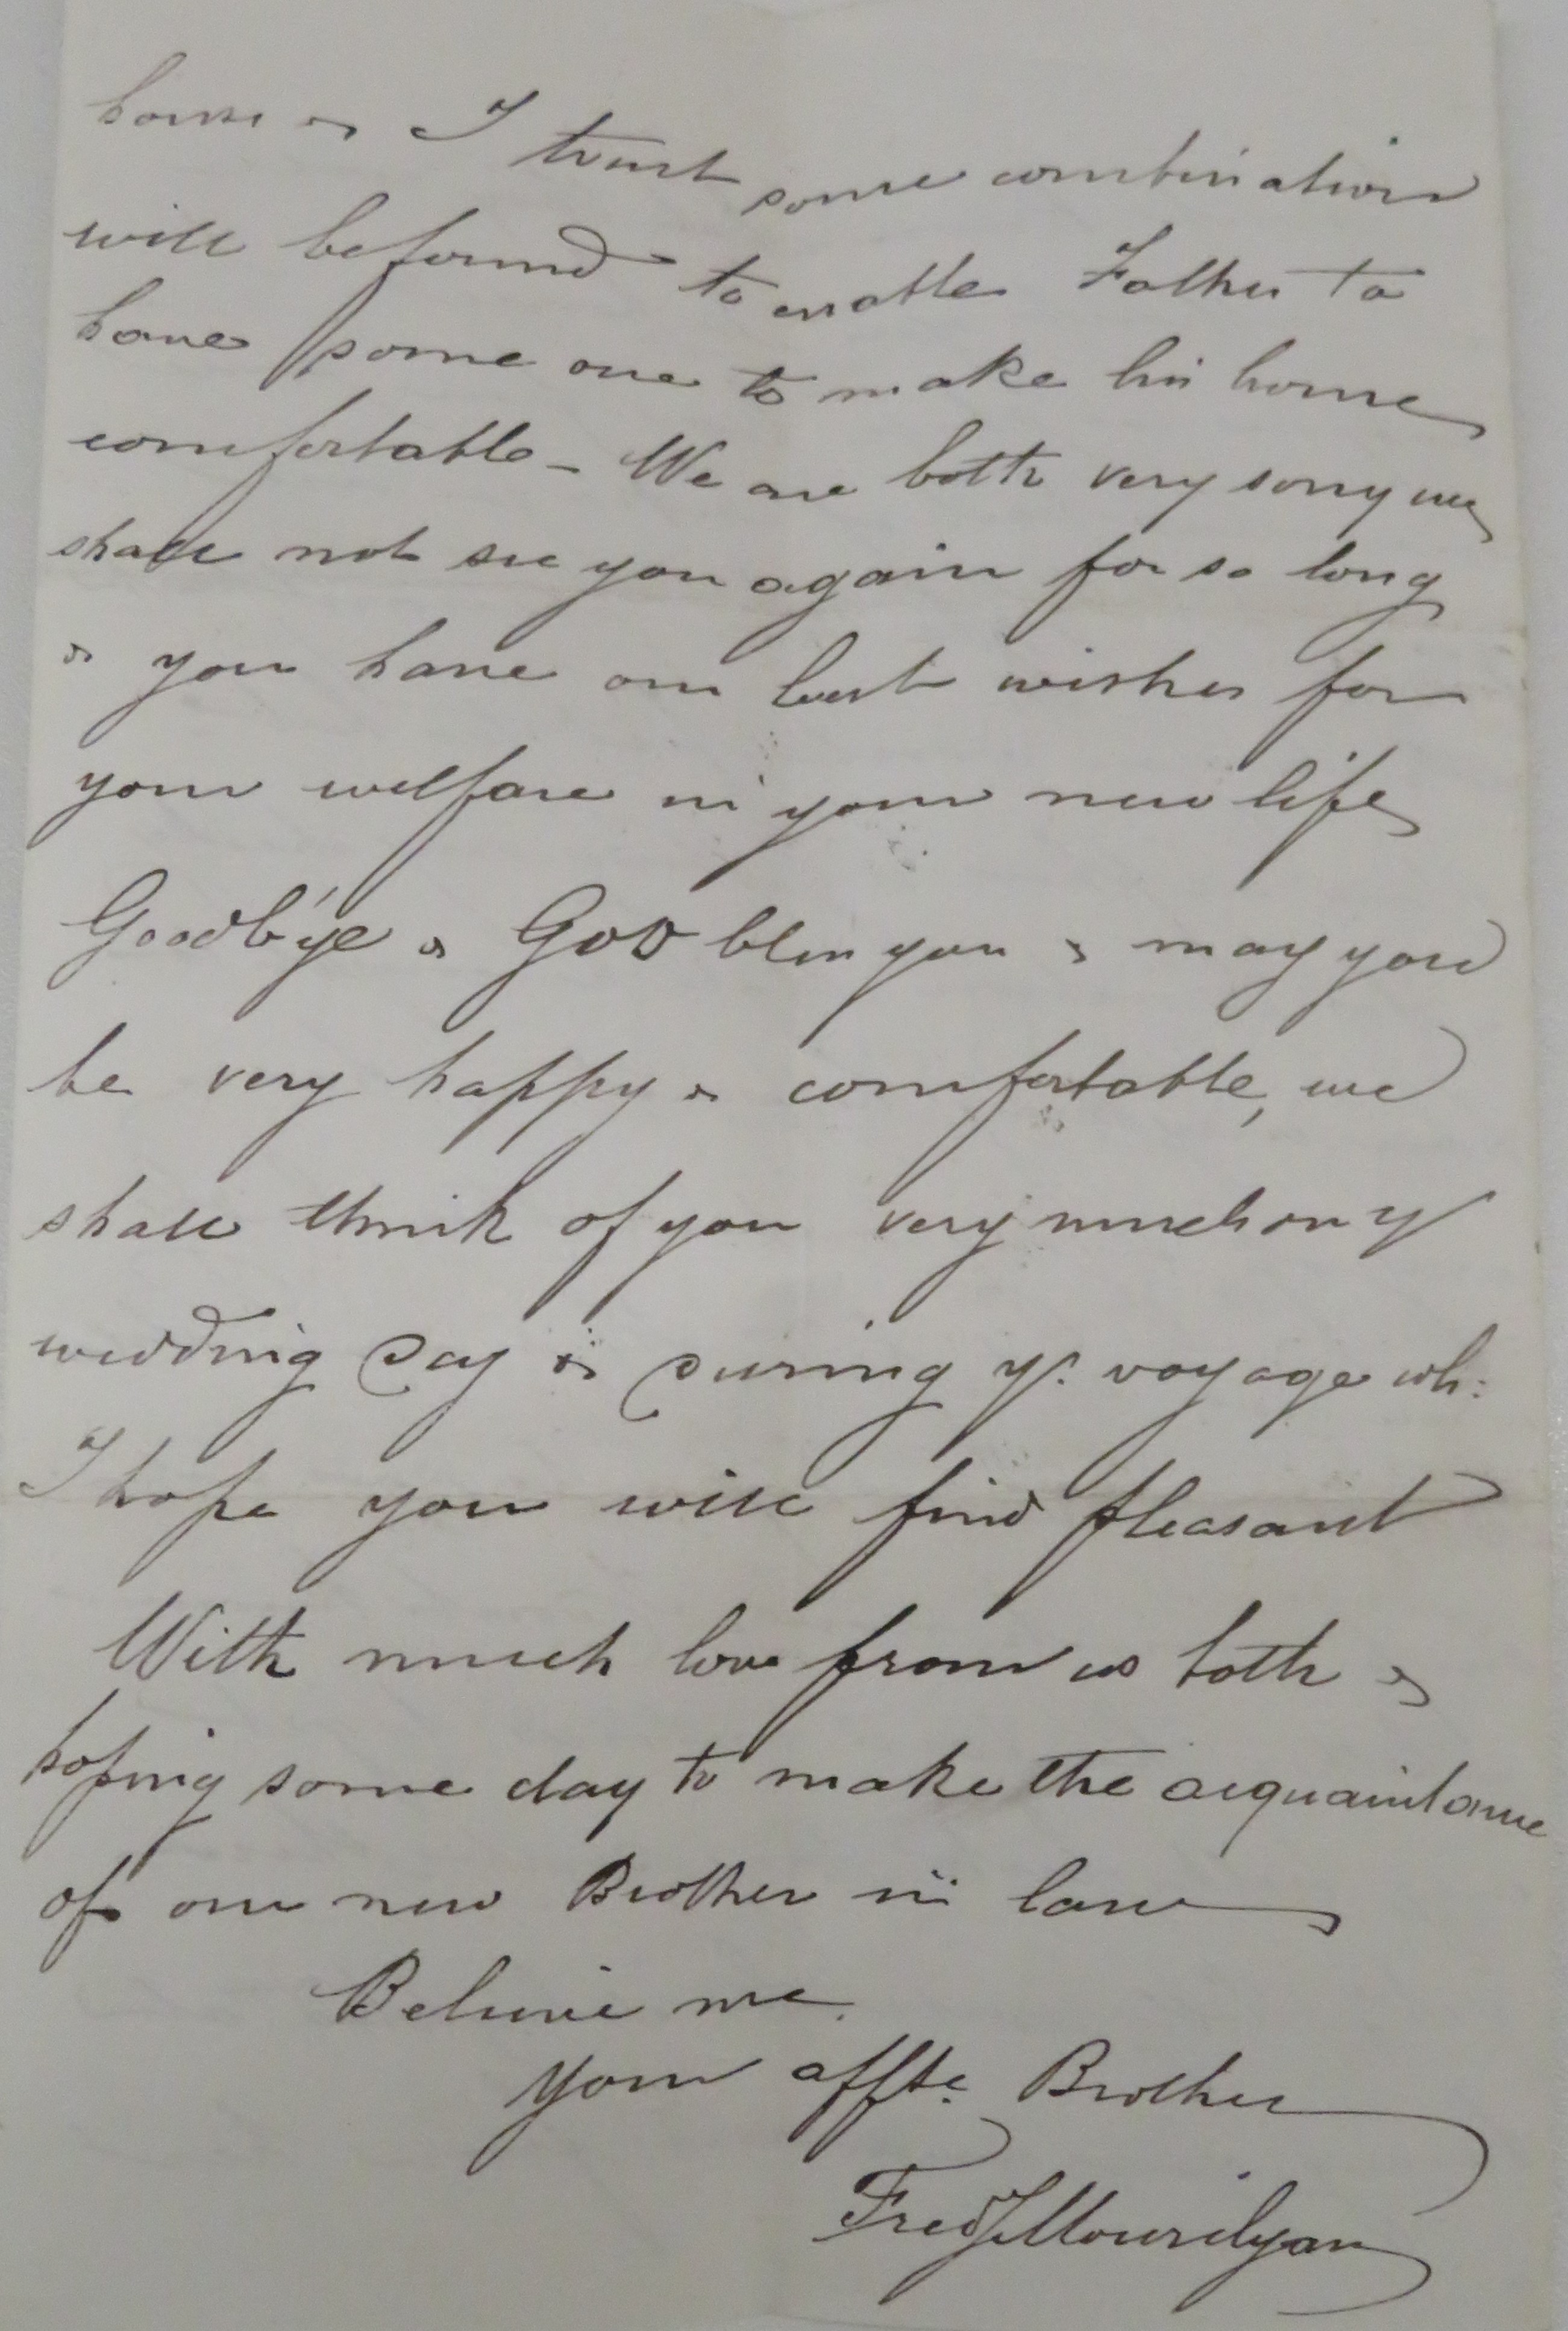 house & I trust some combination
will be found to enable Father to
have some one to make his home
comfortable - We are both very sorry we
shall not see you again for so long
& you have our best wishes for
your welfare in your new life
Goodb'ye & God bless you & may you
be very happy & comfortable, we
shall think of you very much on yr
wedding day & during yr. voyage wh:
I hope you will find pleasant
With much love from us both &
hoping some day to make the acquaintance
of our new Brother in law
Believe me
Your affte. Brother
Fred J Mourilyan